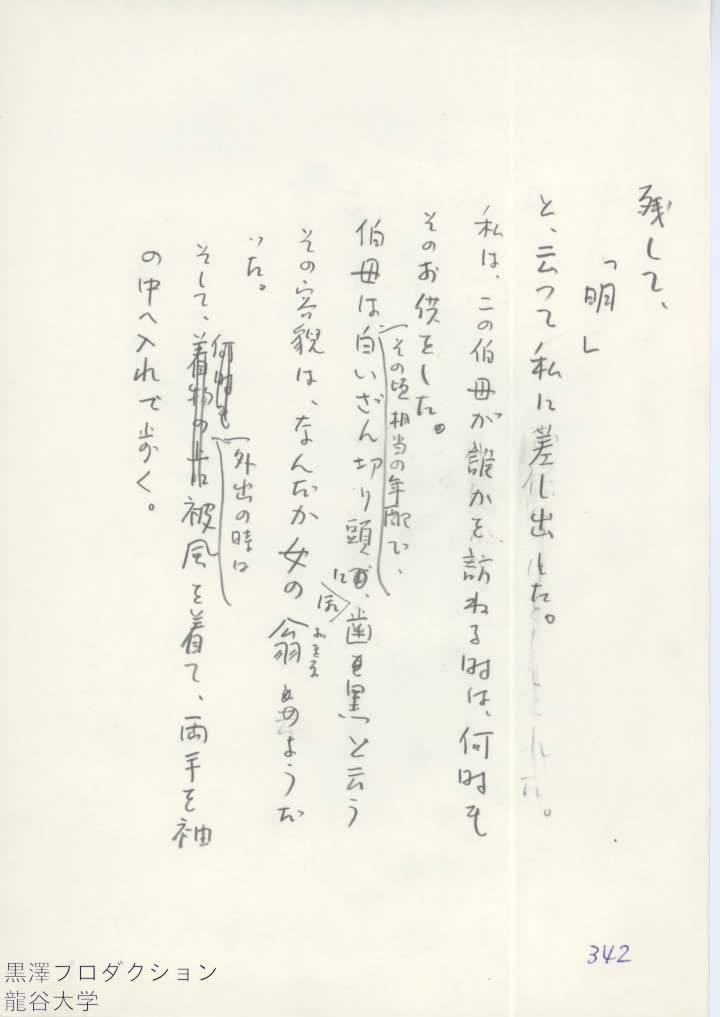 残して、
「明」
と、云つて私に差し出した。
私は、この伯母が誰かを訪ねる時は、何時も
そのお供をした。
その頃相当の年配で、
伯母は白いざん切り頭に、歯を黒と云う
その容貌は、なんだか女の翁のようだ
おきな
った。
外出の時は
何時も
そして、着物の上に被風を着て、両手を袖
の中へ入れて歩く。
342
黒澤プロダクション
龍谷大学